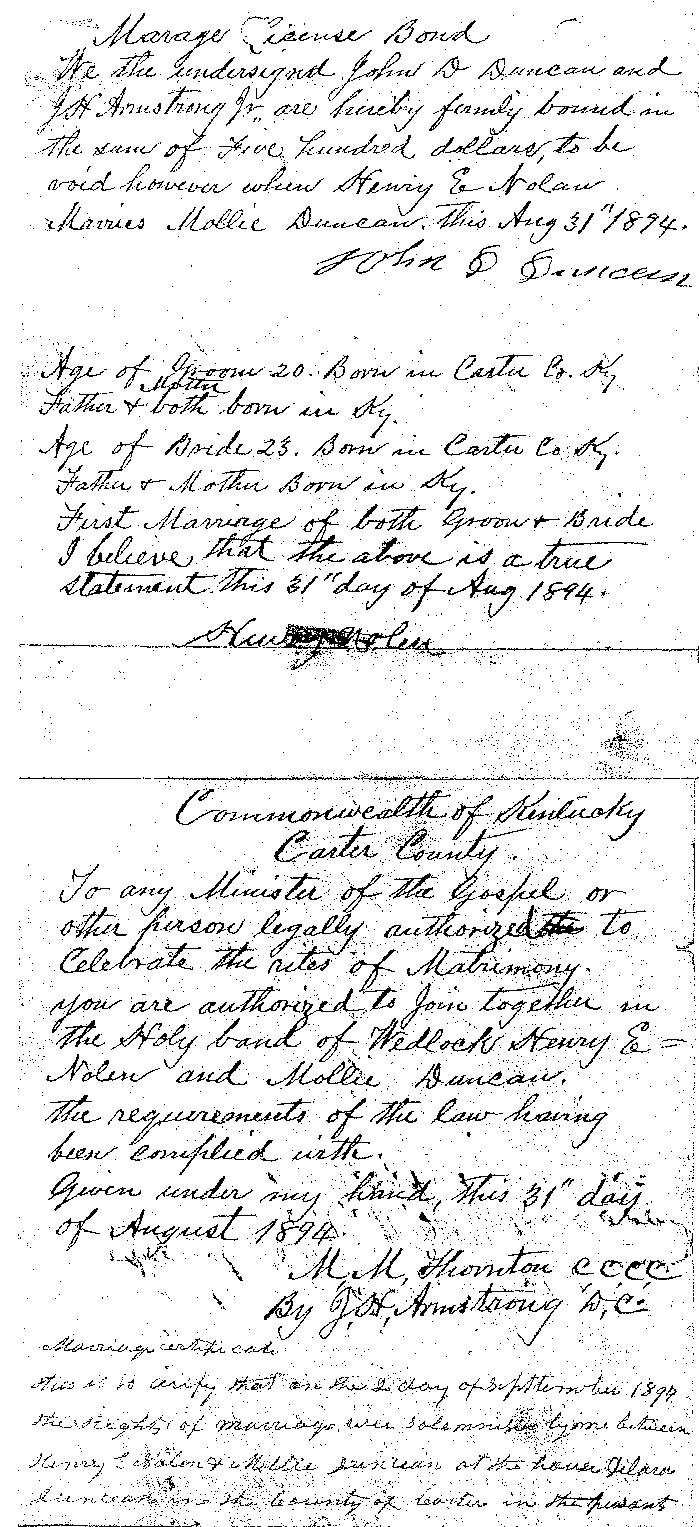 Marage License Bond
We the undersignd John D Duncan and
J H Armstrong Jr, are hereby firmly bound in
the sum of Five hundred dollars, to be
void however when Henry E Nolan
Marries Mollie Duncan. this Aug 31" 1894.
John D Duncan
Age of Groom 20. Born in Carter Co. Ky
Mother
Father & both born in Ky.
Age of Bride 23. Born in Carter Co Ky.
Father & Mother Born in Ky.
First Marriage of both Groom & Bride
I believe that the above is a true
statement this 31" day of Aug 1894.
Henry Nolen
Commonwealth of Kentucky
Carter County.
To any Minister of the Gospel or
other person legally authorized to
Celebrate the rites of Matrimony.
you are authorized to Join together in
the Holy band of Wedlock Henry E =
Nolen and Mollie Duncan.
the requirements of the law having
been complied with.
Given under my hand, this 31" day
of August 1894
M, M, Thornton C C C C
By J, H, Armstrong D, C.
Marriage certificate
this is to cirify that on the 2 day of September 1894
the Rights of marriage wer solemnised by me between
Henry E Nolen & Mollie Duncan at the house
Duncan in the County of Carter in the